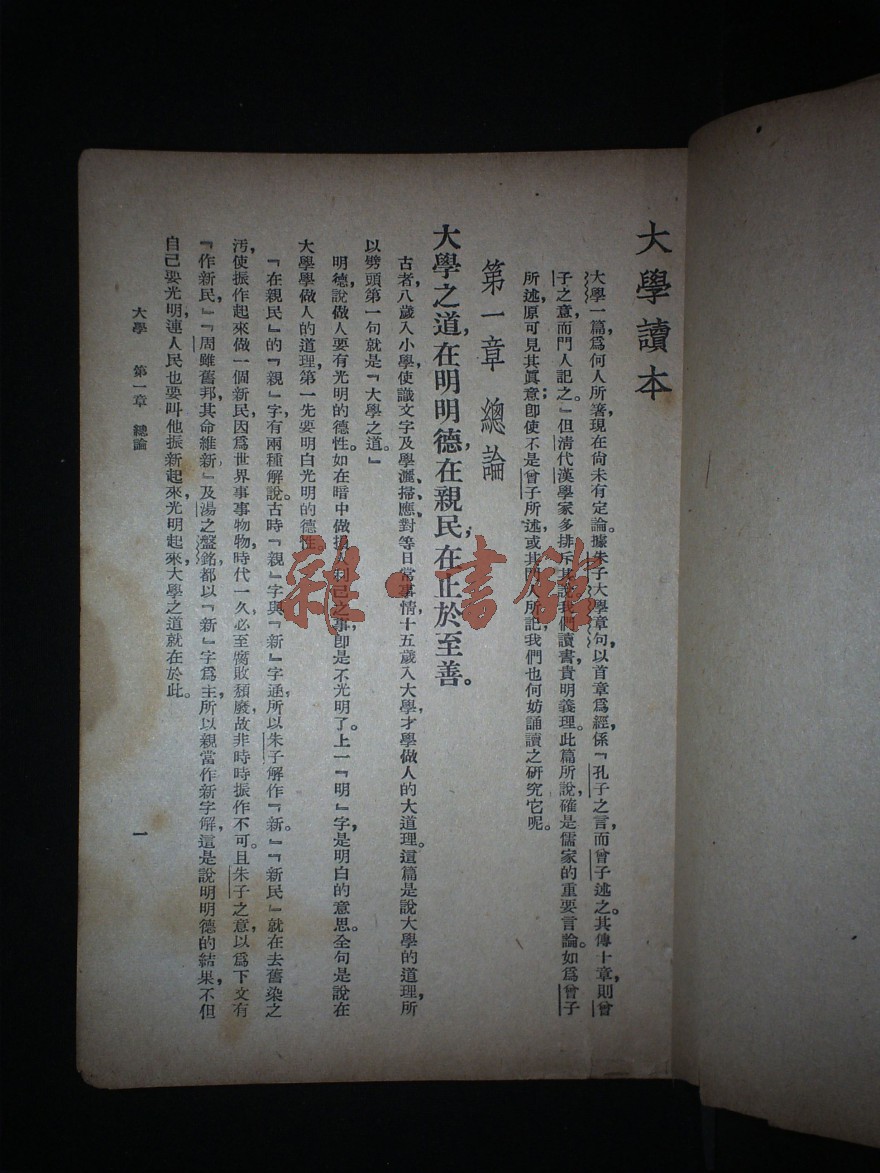 大學讀本
大學一篇，爲何人所著，現在尙未有定論。據朱子大學章句以首章爲經，係『孔子之言，而曾子述之。其傳十章，則曾
子之意而門人記之。』但清代漢學家多排斥其說。我們讀書，貴明義理。此篇所說，確是儒家的重要言論。如爲曾子
所述，原可見其眞意；卽使不是曾子所述，或其門人所記，我們也何妨誦讀之研究它呢。
第一章 總論
大學之道，在明明德，在親民，在止於至善。
古者，八歲入小學，使識文字及學灑、掃、應、對等日常事情，十五歲入大學，才學做人的大道理。這篇是說大學的道理，所
以劈頭第一句就是『大學之道。』
明德說做人要有光明的德性。如在暗中做損人利己之事，卽是不光明了。上一『明』字是明白的意思。全句是說在
大學學做人的道理，第一先要明白光明的德性。
『在親民』的『親』字有兩種解說。古時『親』字與『新』字通，所以朱子解作『新。』『新民』就在去舊染之
汚，使振作起來做一個新民。因爲世界事事物物，時代一久，必至腐敗頹廢，故非時時振作不可。且朱子之意，以爲下文有
『作新民』『周雖舊邦，其命維新』及湯之盤銘，都以『新』字爲主，所以親當作新字解，這是說明明德的結果，不但
自己要光明，連人民也要叫他振新起來，光明起來，大學之道就在於此。
大學 第一章 總論
一
雜·書館